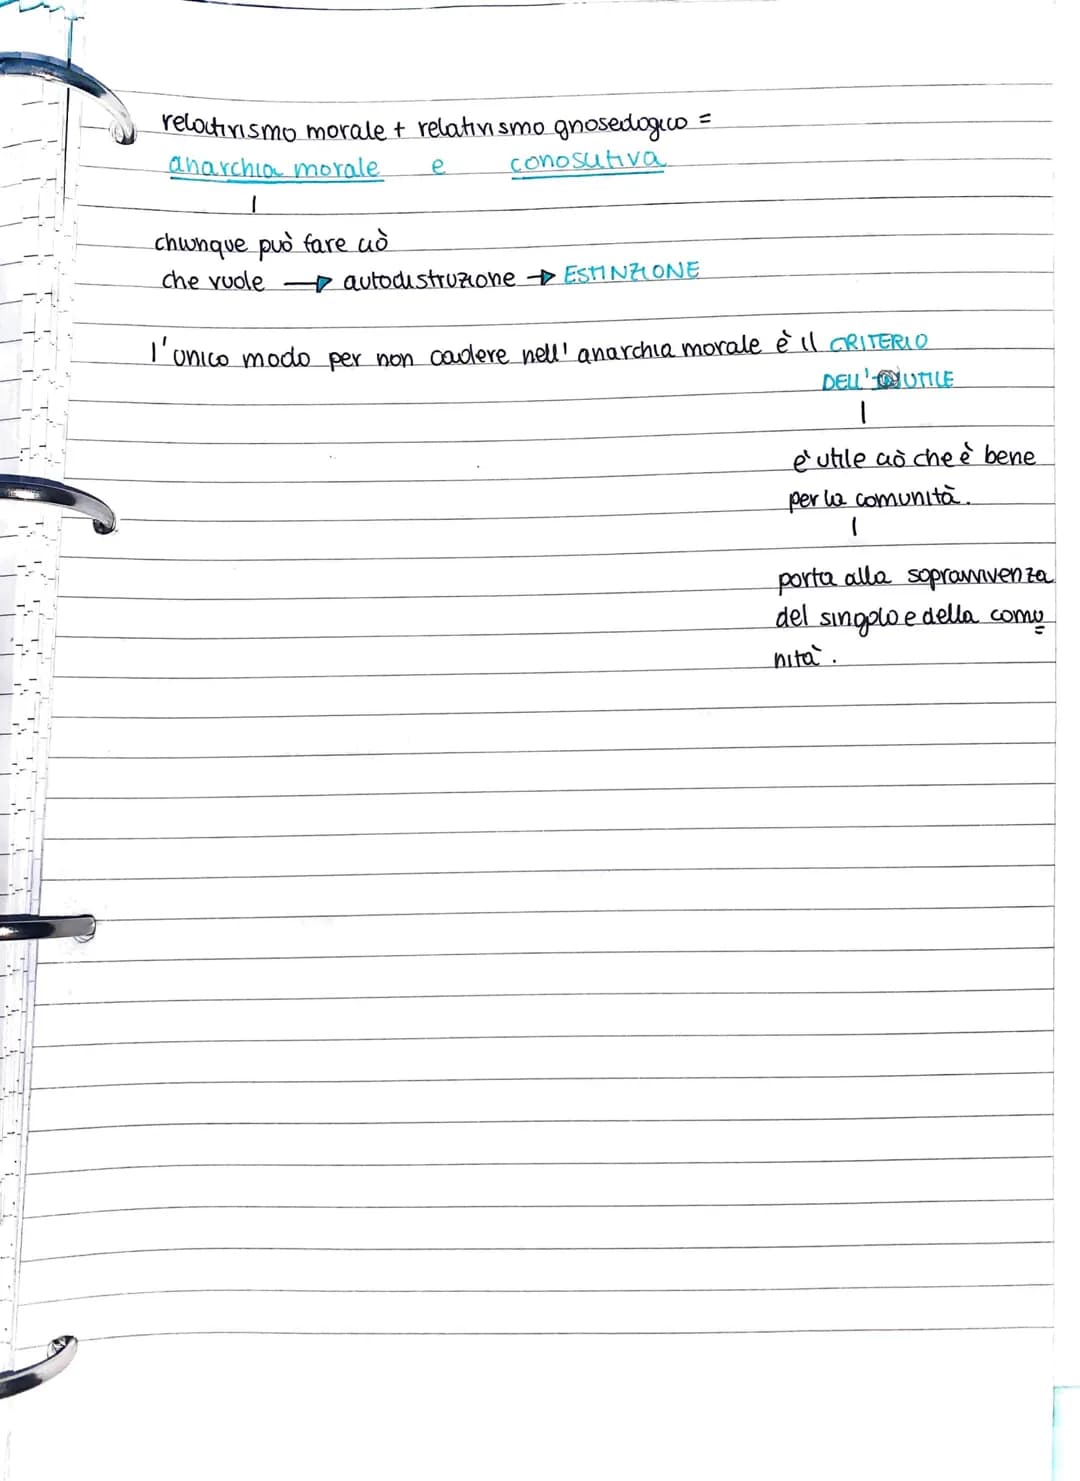 relativismo morale + relativismo gnoseologico =
anarchia morale e conoscitiva
chiunque può fare ciò
che vuole → autodistruzione → ESTINZIONE
l'unico modo per non cadere nell' anarchia morale è il CRITERIO
DELL' UTILE
è utile ciò che è bene
per la comunità.
porta alla sopravvivenza
del singolo e della comu
nità.